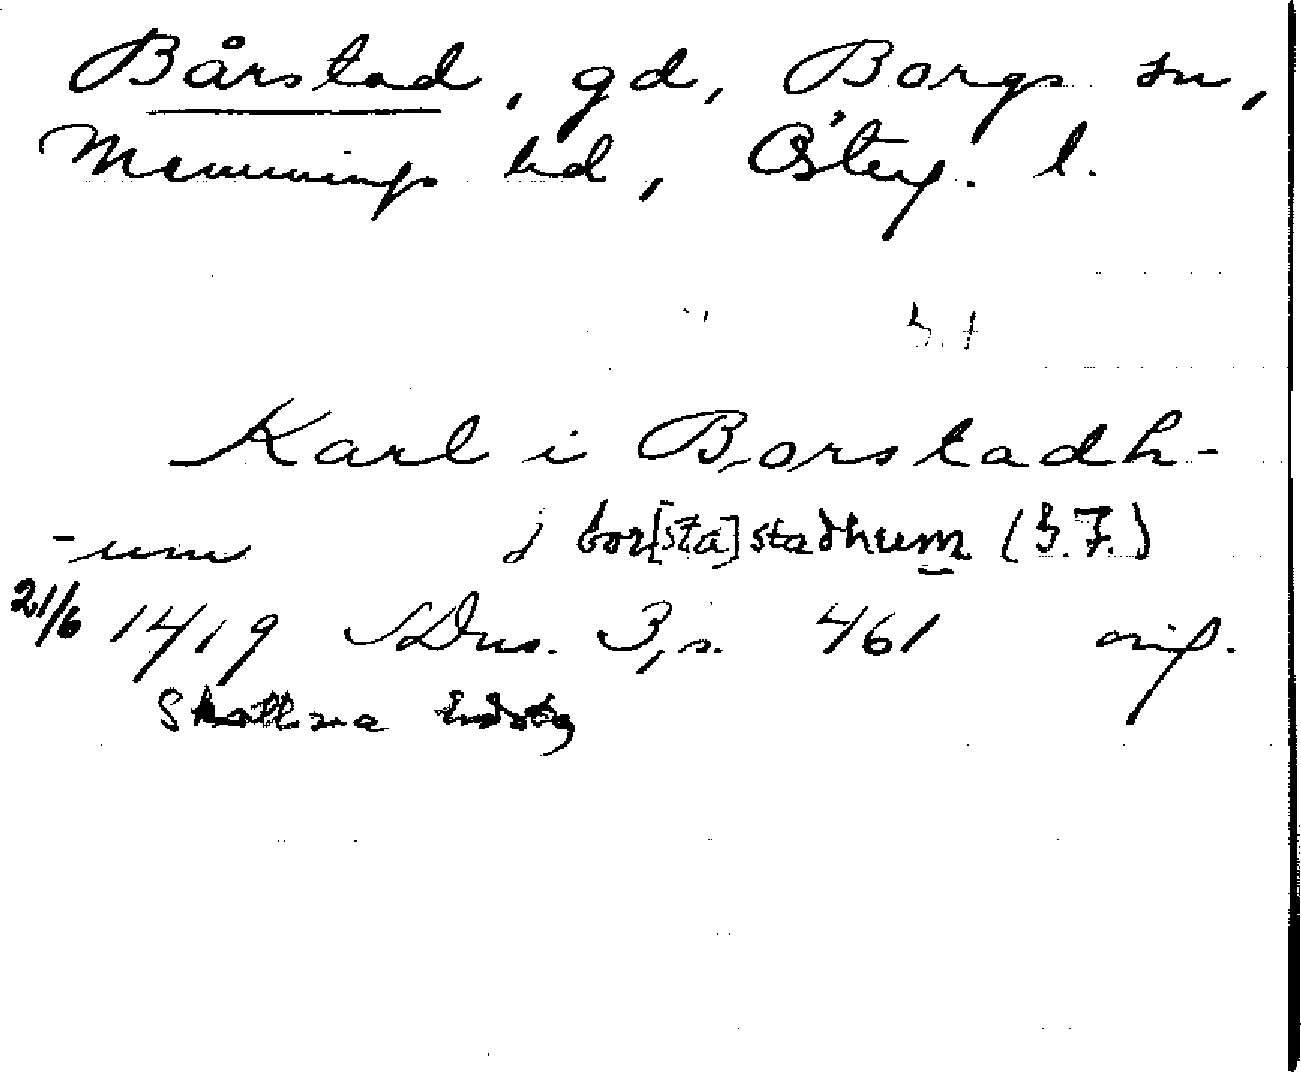 Bårstad, gd, Borgs sn,
Memmings hd, Österg. l.
Karl i Borstadh-
-um j bor[sta]stadhum (B.F.)
21/6 1419 SDns. 3, s. 461 orig.
Skotlena